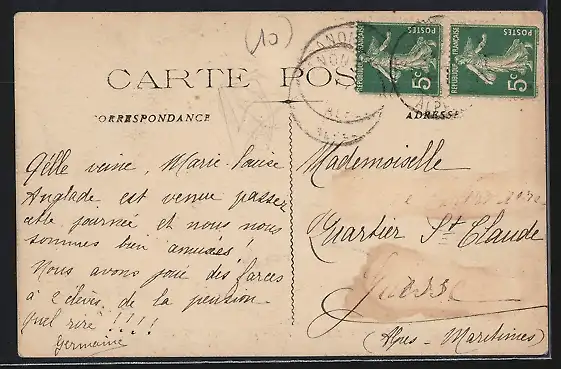 (10)
CARTE POS
RÉPUBLIQUE FRANÇAISE
POSTES
5c
RÉPUBLIQUE FRANÇAISE
POSTES
5c
ORRESPONDANCE
ADRESSE
veine, Marie-Louise
Anglade est venue passer
cette journée et nous nous
sommes bien amusées!
Nous avons joué des farces
à 2 élèves de la pension
quel rire !!!!
Germaine
Mademoiselle
Quartier St Claude
Grasse
(Alpes-Maritimes)